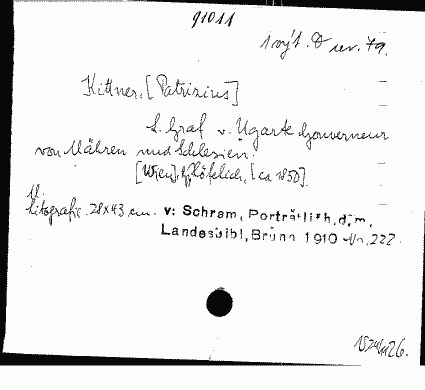 91011
rev. 79.
Kittner, [Patrizius]
Graf v. Ugarte Gouverneur
von Mähren und Schlesien.
[Wien], Höfelich, [ca 1850].
Litografie. 28x43 cm. v: Schram, Porträtißh.d.m.
Landesbibl, Brünn 1910 Nr. 222.